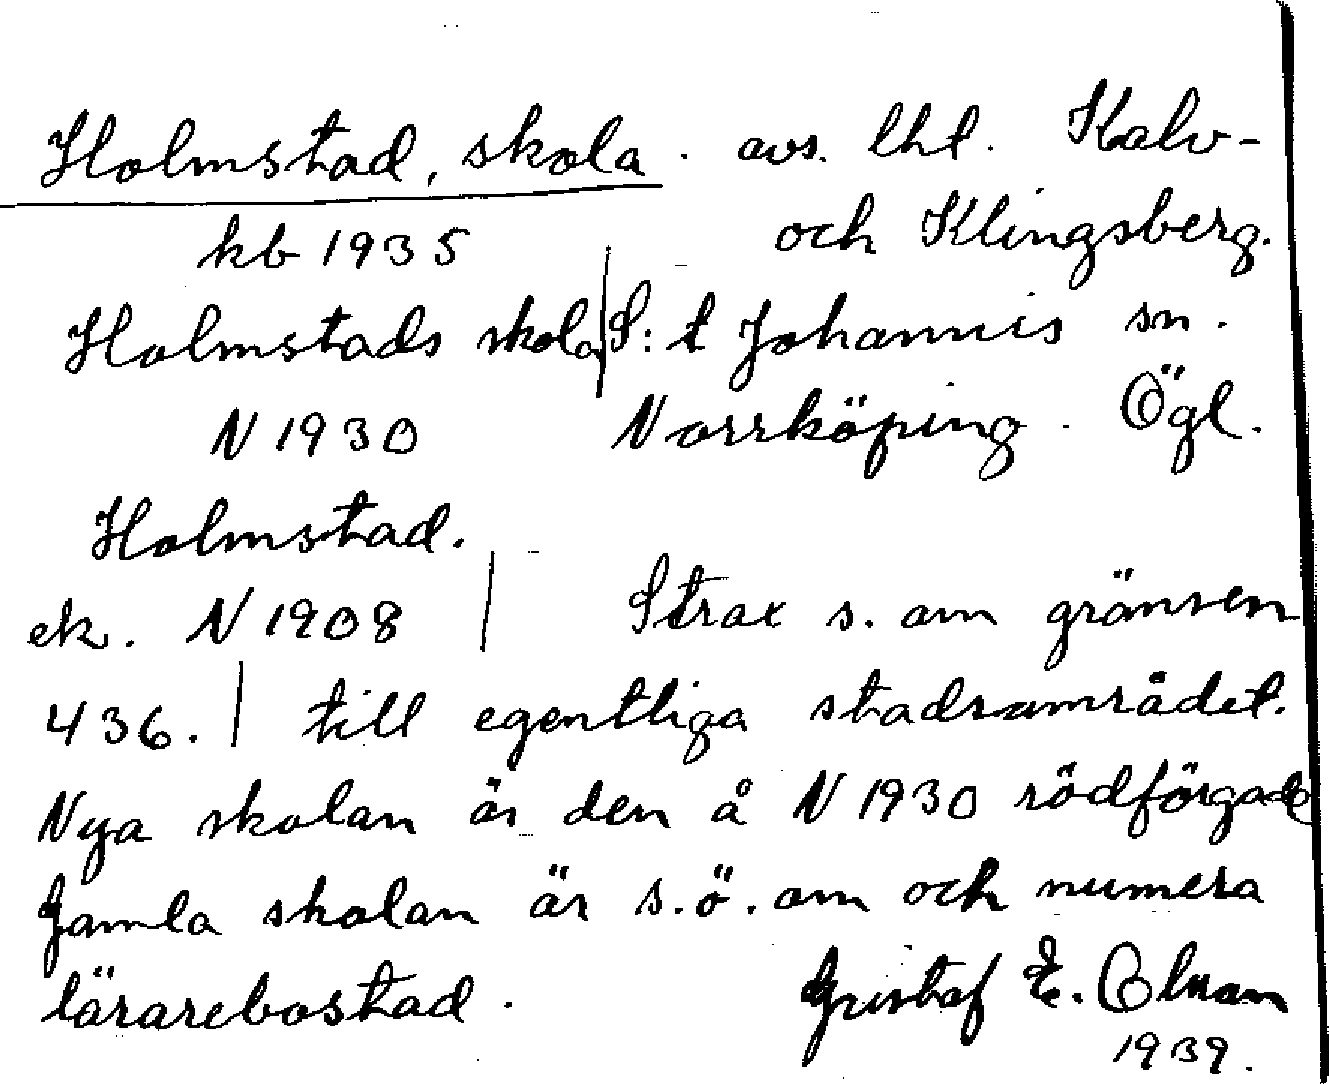 Holmstad, skola. avs. lhl. Kalv-
kb 1935 och Klingsberg.
Holmstads skola S:t Johannis sn.
N 1930 Norrköping. Ögl.
Holmstad.
ek. N 1908 Strax s. om gränsen
436. till egentliga stadsområdet.
Nya skolan är den å N 1930 rödfärgade
Gamla skolan är s.ö. om och numera
lärarebostad. Gustaf E.
1939.